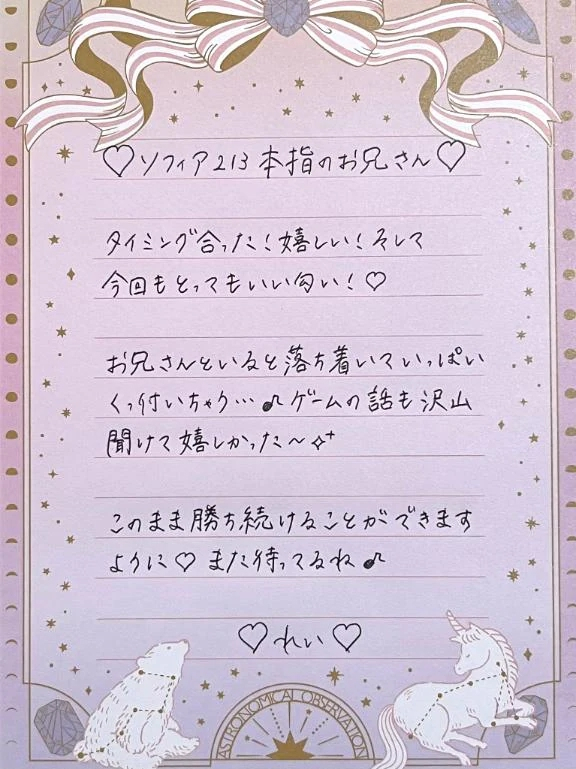 ♡ソフィア213本指のお兄さん♡
タイミング合った！嬉しい！そして
今回もとってもいい匂い！♡
お兄さんといると落ち着いていっぱい
くっ付いちゃう…♪ゲームの話も沢山
聞けて嬉しかった〜✧⁺
このまま勝ち続けることができます
ように♡また待ってるね♪
♡れい♡
ASTRONOMICAL OBSERVATION